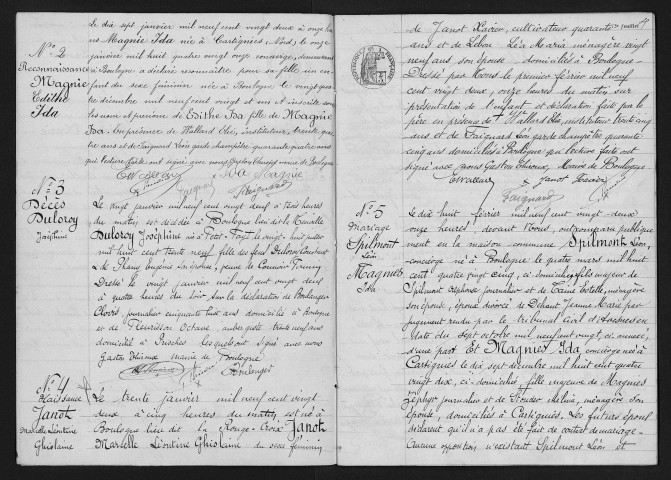 Le dix sept janvier mil neuf cent vingt deux à onze heu
res Magnée Ida née à Cartignies (Nord) le onze
janvier mil huit quatre vingt onze
à Boulogne a déclaré reconnaître pour sa fille un en
fant du sexe féminin née à Boulogne le vingt
décembre mil neuf cent vingt et un et inscrite sous
les nom et prénoms de Edithe Ida fille de Magnée
Ida. En présence de Wallard Elie, instituteur, trente
ans et de Faignard Léon garde champêtre quarante quatre ans
qui lecture faite ont signé avec nous
Nº 2
Reconnaissance
Magnée
Edithe
Ida
Ida Magnée
Faignard
Nº 3
Décès
Duloroy
Joséphine
Le vingt janvier mil neuf cent vingt deux à trois heures
du matin est décédée à Boulogne
Duloroy Joséphine née à Petit Fayt le vingt huit
mil huit cent trente neuf fille des feus Duloroy Constant
& de veuve de
Dressé le vingt janvier mil neuf cent vingt deux
à quatre heures du soir sur la déclaration de Boulanger
Clovis, journalier cinquante huit ans domicilié à Boulogne
et de Fleurisson Octave, aubergiste trente neuf ans
domicilié à Prisches lesquels ont signé avec nous
Gaston Thiroux maire de Boulogne
Boulanger
Nº 4
Naissance
Janot
Marcelle Léontine
Ghislaine
Le trente janvier mil neuf cent vingt
deux à cinq heures du matin est née à
Boulogne lieu dit la Rouge-Croix Janot
Marcelle Léontine Ghislaine du sexe féminin
de Janot Xavier, cultivateur quarante
ans et de Lebon Léa Maria ménagère vingt
neuf ans son épouse domiciliés à Boulogne
Dressé par Nous le premier février mil neuf
cent vingt deux, onze heures du matin sur
présentation de l'enfant et déclaration faite par le
père en présence de Wallard Elie, instituteur trente cinq
ans et de Faignard Léon garde champêtre quarante
cinq ans domiciliés à Boulogne qui lecture faite ont
signé avec nous Gaston Thiroux Maire de Boulogne
Janot Xavier
Faignard
Nº 5
Mariage
Spilmont
Léon
et
Magniez
Ida
Le dix huit février mil neuf cent vingt deux
onze heures, devant Nous, ont comparu publique
ment en la maison commune Spilmont Léon,
concierge né à Boulogne le quatre mars mil huit
cent quatre vingt cinq, ci domicilié, fils majeur de
Spilmont Alphonse journalier et de ménagère
son épouse, époux divorcé de Dehaut Jeanne Marie par
jugement rendu par le tribunal civil d'Avesnes en
date du sept octobre mil neuf cent vingt, ci annexé,
d'une part Et Magniez Ida, concierge née à
Cartignies le dix sept décembre mil huit cent quatre
vingt dix, ci-domiciliée, fille majeure de Magniez
Zéphyr journalier et de ménagère son
épouse, domiciliés à Cartignies. Les futurs époux
déclarent qu'il n'a pas été fait de contrat de mariage.
Aucune opposition n'existant Spilmont Léon et